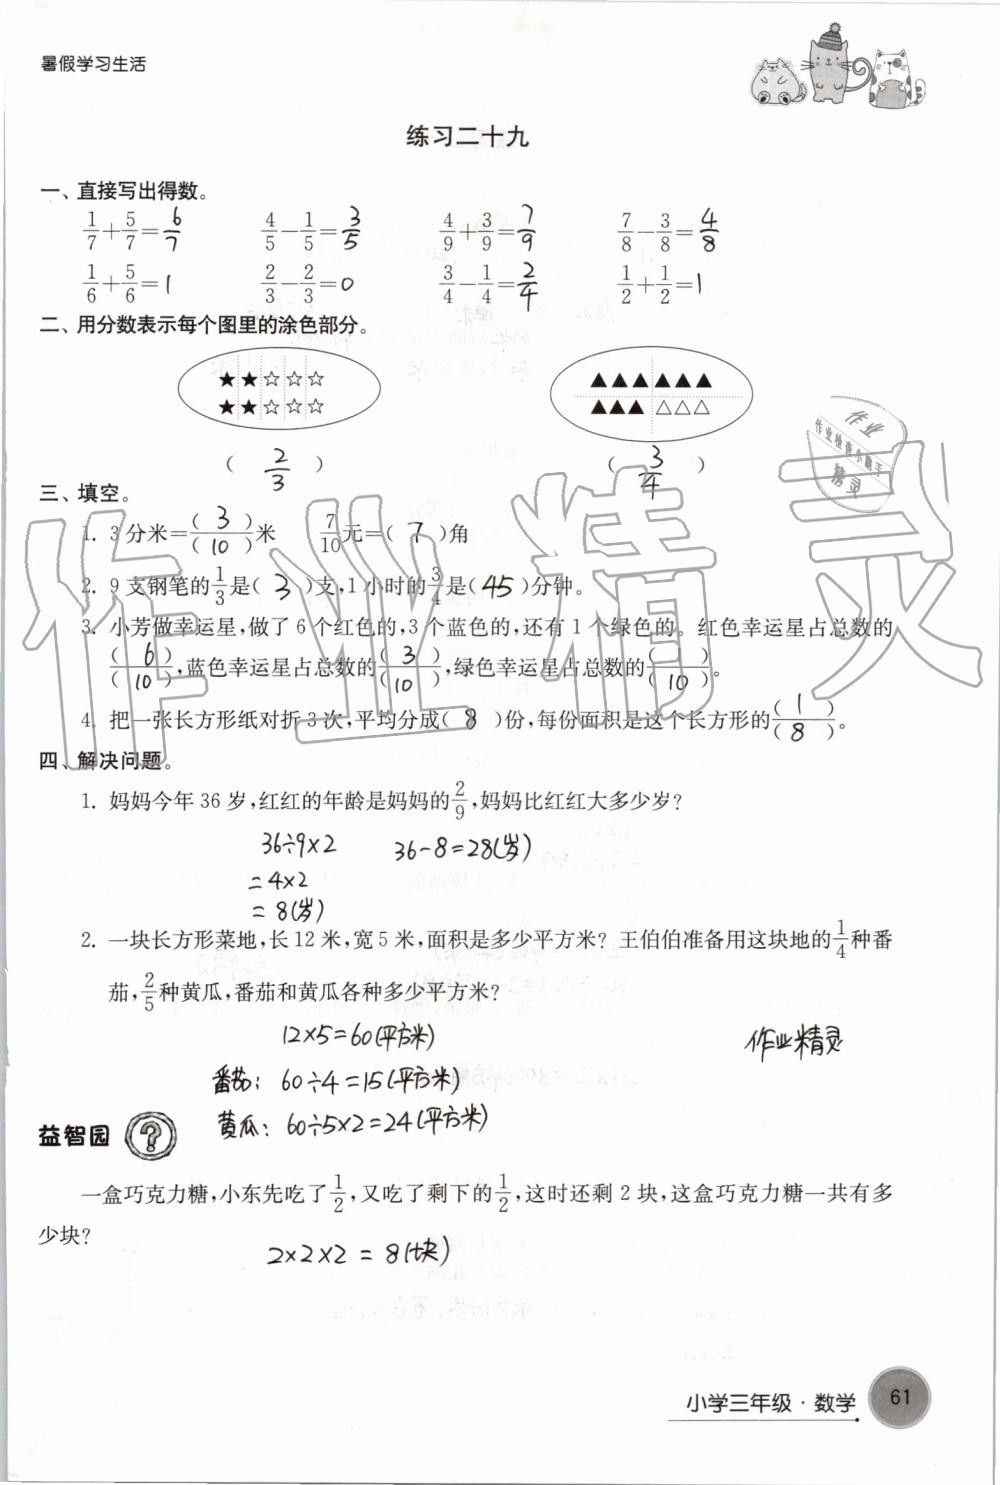 暑假学习生活
练习二十九
一、直接写出得数。
1/7+5/7=6/7 4/5-1/5=3/5 4/9+3/9=7/9 7/8-3/8=4/8
1/6+5/6=1 2/3-2/3=0 3/4-1/4=2/4 1/2+1/2=1
二、用分数表示每个图里的涂色部分。
( 2/3 ) ( 3/4 )
三、填空。
1. 3分米=(3)/(10)米 7/10元=(7)角
2. 9支钢笔的1/3是(3)支,1小时的3/4是(45)分钟。
3. 小芳做幸运星,做了6个红色的,3个蓝色的,还有1个绿色的。红色幸运星占总数的
(6)/(10),蓝色幸运星占总数的(3)/(10),绿色幸运星占总数的( )/(10)。
4. 把一张长方形纸对折3次,平均分成(8)份,每份面积是这个长方形的(1)/(8)。
四、解决问题。
1. 妈妈今年36岁,红红的年龄是妈妈的2/9,妈妈比红红大多少岁?
36÷9×2 36-8=28(岁)
=4×2
=8(岁)
2. 一块长方形菜地,长12米,宽5米,面积是多少平方米?王伯伯准备用这块地的1/4种番
茄,2/5种黄瓜,番茄和黄瓜各种多少平方米?
12×5=60(平方米)
作业精灵
番茄:60÷4=15(平方米)
黄瓜:60÷5×2=24(平方米)
益智园 ?
一盒巧克力糖,小东先吃了1/2,又吃了剩下的1/2,这时还剩2块,这盒巧克力糖一共有多
少块?
2×2×2=8(块)
小学三年级·数学 61
作业精灵
作业
作业检查小助手
精灵